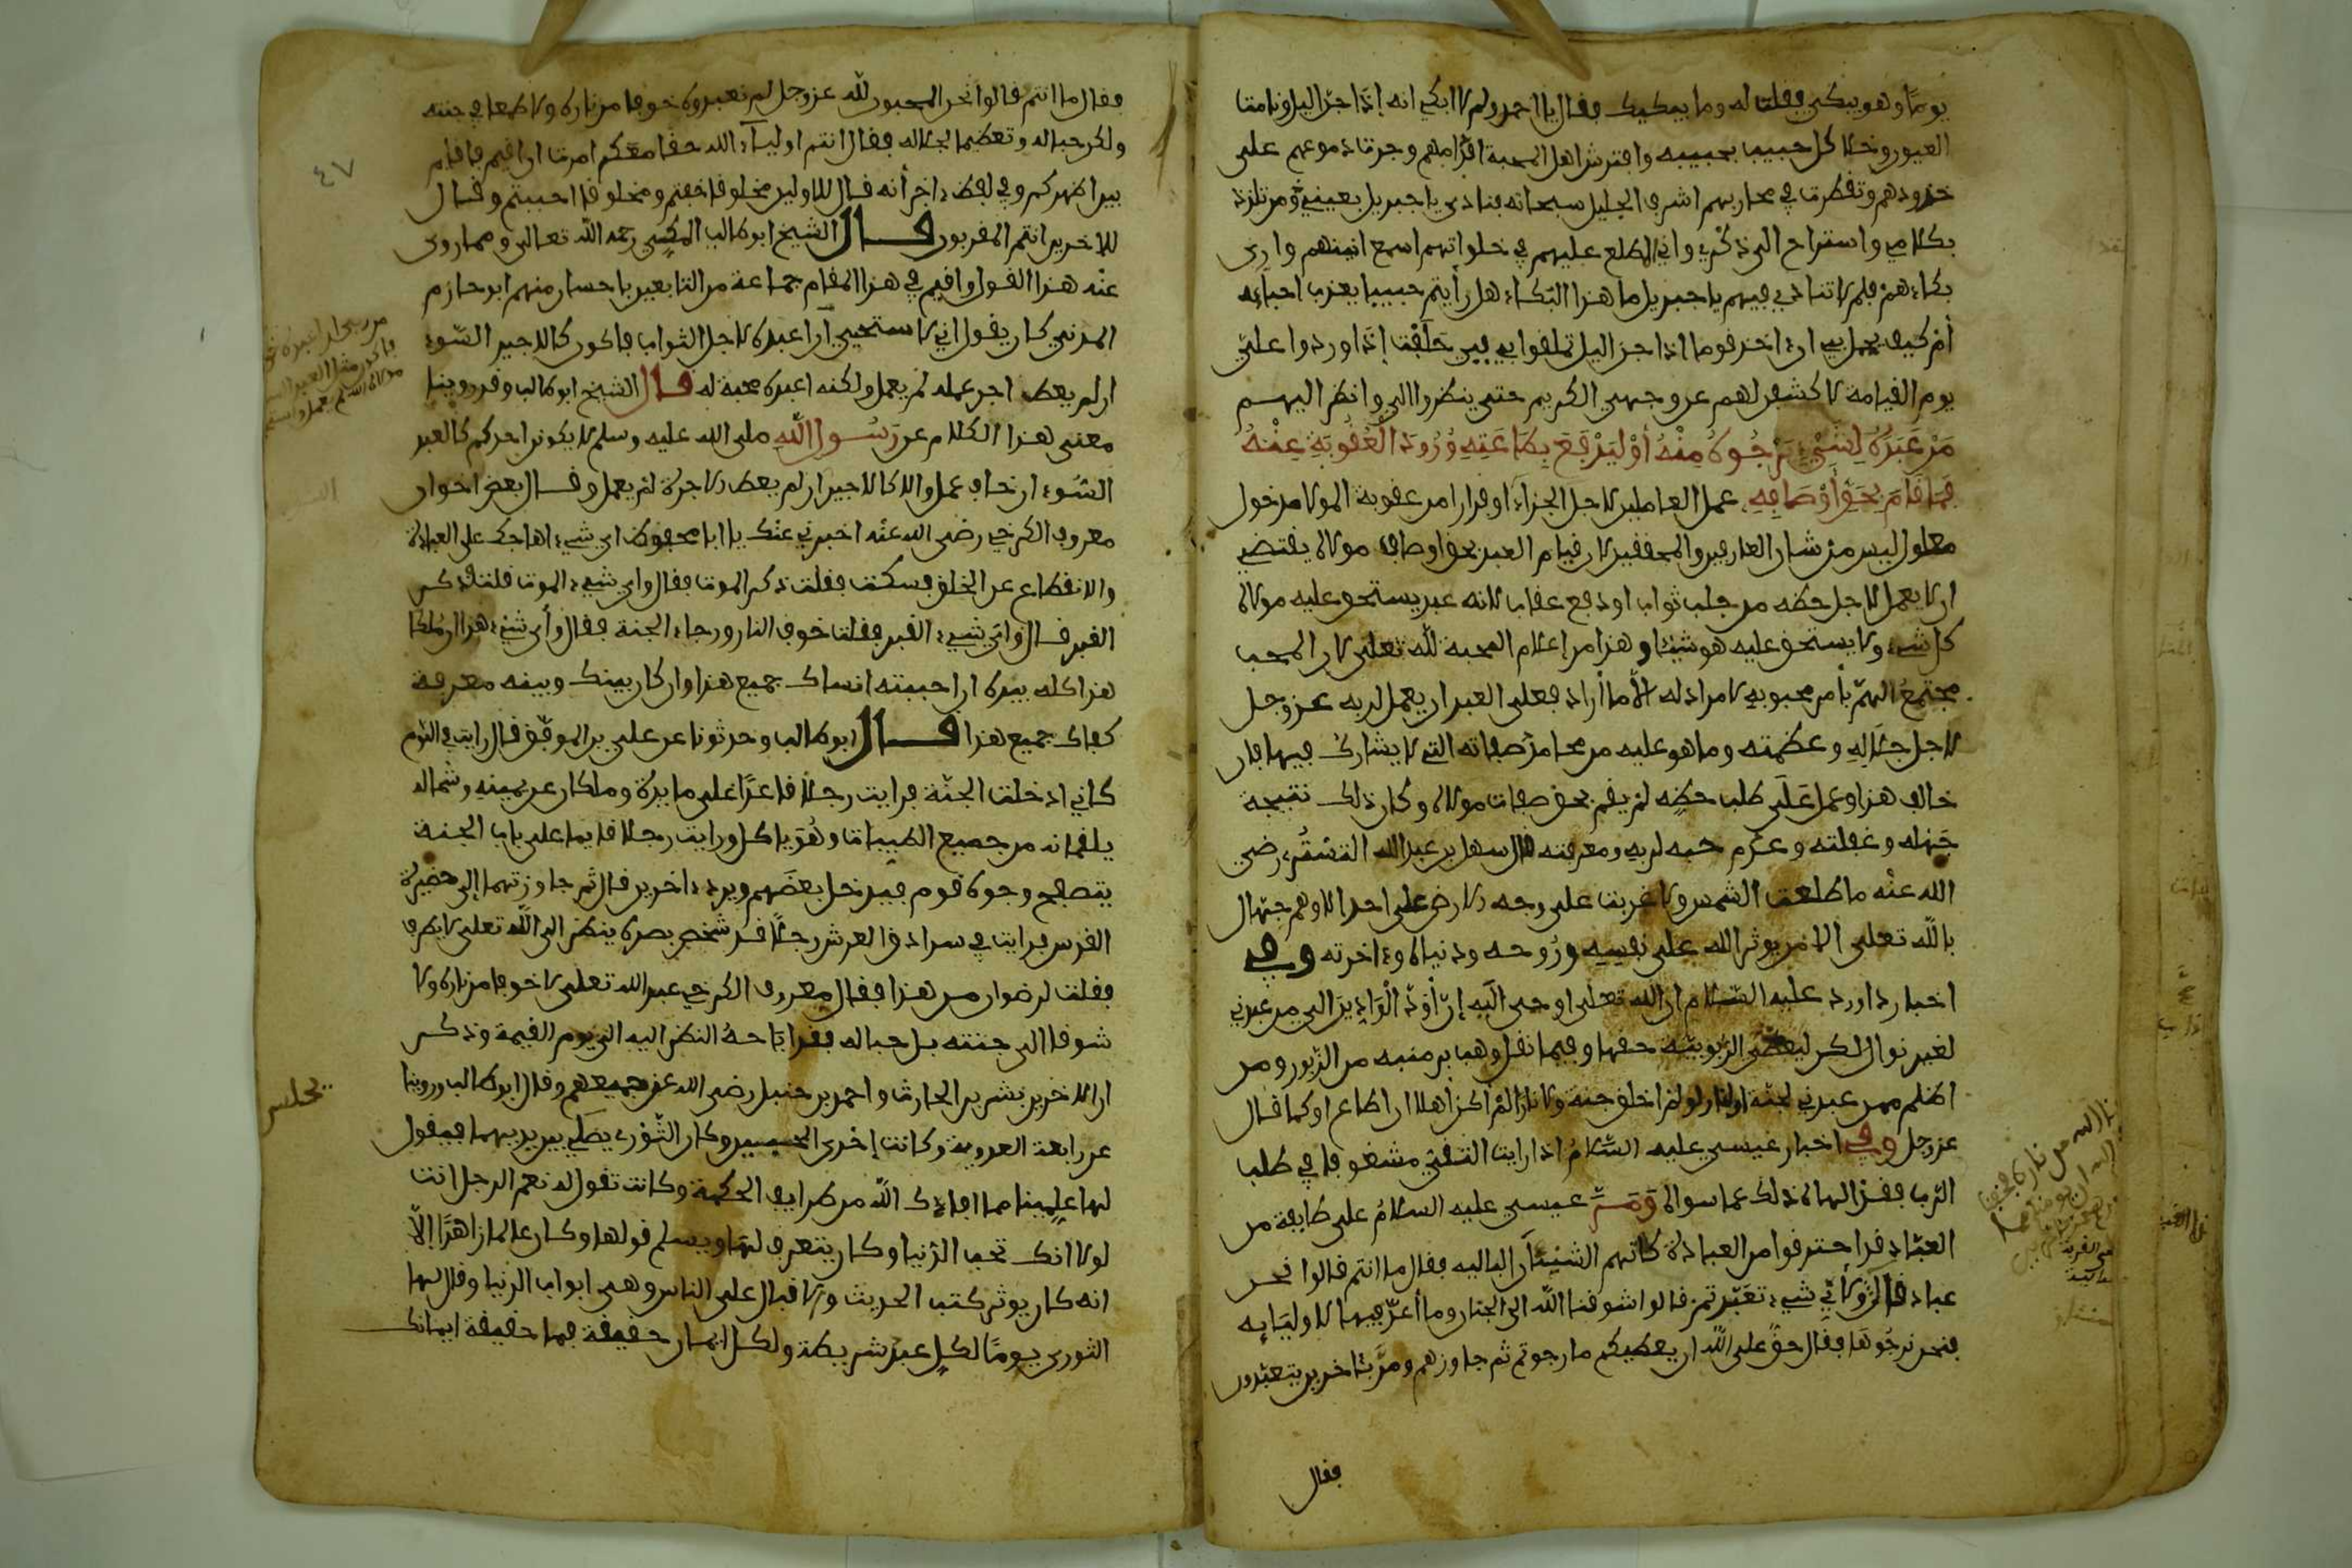 يومًا وهو يبكي فقلت له وما يبكيك فقال يا احمد ولم لا ابكي انه إذا جن الليل ونامت
العيون وخلا كل حبيب بحبيبه وافترش اهل المحبة اقدامهم وجرت دموعهم على
خدودهم وتقطرت في محاربهم اشرف الجليل سبحانه فنادى يا جبريل بعيني من تلذذ
بكلامي واستراح الى ذكري واني لمطلع عليهم في خلواتهم اسمع انينهم وارى
بكاءهم فلم لا تنادي فيهم يا جبريل ما هذا البكاء هل رأيتم حبيبا يعذب احباءه
أم كيف يجمل بي ان ءاخذ قوما اذا جن اليل تملقوا بي فبي حلفت إذا وردوا علي
يوم القيامة لاكشفن لهم عن وجهي الكريم حتى ينظروا الي وانظر اليهم
مَنْ عَبَدَهُ لِشَيْءٍ يَرْجُوهُ مِنْهُ أَوْ لِيَدْفَعَ بِطَاعَتِهِ وُرُودَ الْعُقُوبَةِ عِنْهُ
فَمَا قَامَ بِحَقِّ أَوْصَافِهِ عمل العاملين لاجل الجزاء او فرارا من عقوبة المولى مدخول
معلول ليس من شان العارفين والمحققين لان قيام العبد بحق اوصاف مولاه يقتضي
ان لا يعمل لاجل حظه من جلب ثواب او دفع عقاب لانه عبد يستحق عليه مولاه
كل شيء ولا يستحق عليه هو شيئا وهذا من اعلام المحبة لله تعلى لان المحب
مجتمع الهم بأمر محبوبه لا مراد له الا ما أراد فعلى العبد ان يعمل لربه عز وجل
لاجل جلاله وعظمته وما هو عليه من محامد صفاته التي لا يشارك فيها فان
خالف هذا وعمل عَلَى طلب حظه لم يقم بحق صفات مولاه وكان ذلك نتيجة
جَهله وغفلته وعدم حبه لربه ومعرفته قال سهل بن عبد الله التستُري رضي
الله عنه ما طلعت الشمس ولا غربت على وجه الارض على احد الا وهم جهال
بالله تعلى الا من يوثر الله على نفسه ورُوحه ودنياه وءاخرته وفي
اخبار داوود عليه السلام ان الله تعلى اوحى اليه إن أَوَدَّ الْأَوِدَّاءِ الي من عبدني
لغير نوال لكن ليعطي الربوبية حقها وفيما نقل وهب بن منبه من الزبور ومن
اظلم ممن عبدني لجنة او لنار لو لم اخلق جنة ولا نارا الم أكن أهلا ان اطاع او كما قال
عز وجل وفي اخبار عيسى عليه السلام اذا رايت التقي مشغوفا في طلب
الرب فقد الهاه ذلك عما سواه وَمَرَّ عيسى عليه السلام على طايفة من
العبّاد قد احترقوا من العبادة كانهم الشنان البالية فقال ما انتم قالوا نحن
عباد قال ولأي شيء تعبدتم قالوا شوقنا الله الى الجنان وما أعدّ فيها لاوليَايِه
فنحن نرجُوهَا فقال حق على الله ان يعطيكم ما رجوتم ثم جاوزهم ومرّ بئاخرين يتعبدون
فقال
٤٧
فقال ما انتم قالوا نحن المحبون لله عز وجل لم نعبده خوفا من ناره ولا طمعا في جنته
ولكن حبا له وتعظيما لجلاله فقال انتم اولياء الله حقا معكم امرت ان اقيم فاقام
بين اظهرهم وفي لفظ ءاخر أنه قال للاولين مخلوقا خفتم ومخلوقا احببتم وقال
للاخرين انتم المقربون قال الشيخ ابو طالب المكي رحمه الله تعالى وممن روى
عنه هذا القول واقيم في هذا المقام جماعة من التابعين باحسان منهم ابو حازم
المدني كان يقول اني لاستحيي أن اعبده لاجل الثواب فاكون كالاجير السّوء
ان لم يعط اجر عمله لم يعمل ولكنه اعبده محبة له قال الشيخ ابو طالب وقد روينا
معنى هذا الكلام عن رَسُول اللهِ صلى الله عليه وسلم لا يكونن احدكم كالعبد
السّوء ان خاف عمل ولا كالاجير ان لم يعط الاجرة لم يعمل وقال بعض اخوان
معروف الكرخي رضي الله عنه اخبرني عنك يا ابا محفوظ اي شيء اهاجك على العبادة
والانقطاع عن الخلق فسكت فقلت ذكر الموت فقال واي شيء الموت قلت ذكر
القبر قال واي شيء القبر فقلت خوف النار ورجاء الجنة فقال وأي شيء هذا ان ملكا
هذا كله بيده ان احببته انساك جميع هذا وان كان بينك وبينه معرفة
كفاك جميع هذا قال ابو طالب وحدثونا عن علي بن الموفق قال رايت في النوم
كاني ادخلت الجنّة فرايت رجلا قاعدًا على مايدة وملكان عن يمينه وشماله
يلقمانه من جميع الطيبات وهُو ياكل ورايت رجلا قايما على باب الجنة
يتصفح وجوه قوم فيدخل بعضهم ويرد ءاخرين قال ثم جاوزتهما إلى حضيرة
القدس فرايت في سرادق العرش رجلا قد شخص بصره ينظر الى الله تعلى لا يطرف
فقلت لرضوان من هذا فقال معروف الكرخي عبد الله تعلى لا خوفا من ناره ولا
شوقا الى جنته بل حبا له فقد اباحهُ النظر اليه الى يوم القيمة وذكر
ان الاخرين بشر بن الحارث واحمد بن حنبل رضي الله عن جميعهم وقال ابو طالب وروينا
عن رابعة العدوية وكانت إحدى المحبين وكان الثوري يصلي بين يديها فيقول
لها علمينا مما افادك الله من طرايف الحكمة وكانت تقول له نعم الرجل انت
لولا انك تحب الدنيا وكان يتعرف لها ويسلم قولها وكان عالما زاهدًا إلاّ
انه كان يوثر كتب الحديث والاقبال على الناس وهي ابواب الدنيا وقال لها
الثوري يومًا لكل عبد شريطة ولكل ايمان حقيقة فما حقيقة ايمانك